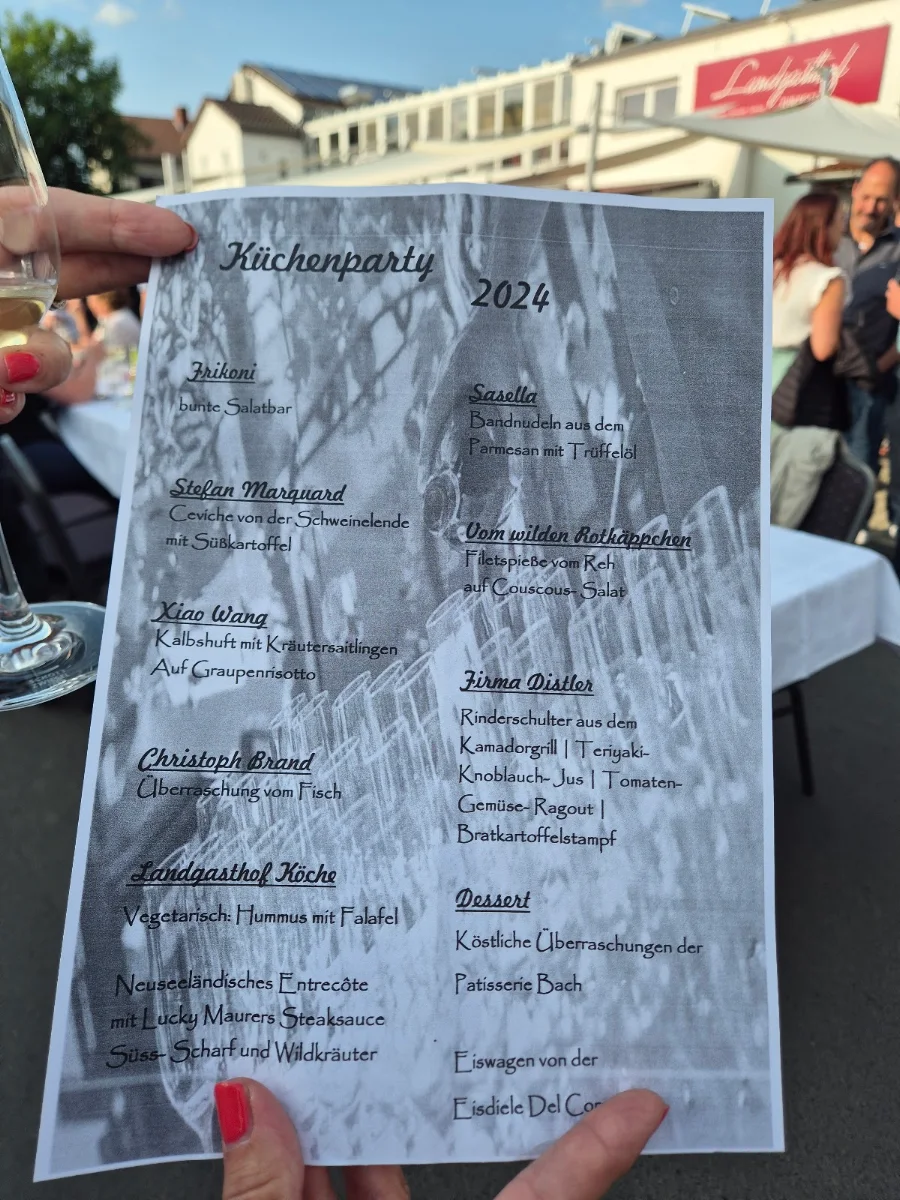 Landgasthof
Küchenparty
2024
Frikoni
bunte Salatbar
Stefan Marquard
Ceviche von der Schweinelende
mit Süßkartoffel
Xiao Wang
Kalbshuft mit Kräutersaitlingen
Auf Graupenrisotto
Christoph Brand
Überraschung vom Fisch
Landgasthof Köche
Vegetarisch: Hummus mit Falafel
Neuseeländisches Entrecôte
mit Lucky Maurers Steaksauce
Süss- Scharf und Wildkräuter
Sasella
Bandnudeln aus dem
Parmesan mit Trüffelöl
Vom wilden Rotkäppchen
Filetspieße vom Reh
auf Couscous- Salat
Firma Distler
Rinderschulter aus dem
Kamadorgrill | Teriyaki-
Knoblauch- Jus | Tomaten-
Gemüse- Ragout |
Bratkartoffelstampf
Dessert
Köstliche Überraschungen der
Patisserie Bach
Eiswagen von der
Eisdiele Del